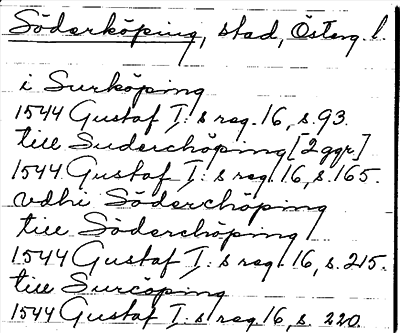 Söderköping, stad, Österg. l.
i Surköping
1544 Gustaf I:s reg. 16, s. 93.
till Suderchöping [2 ggr]
1544 Gustaf I:s reg. 16, s. 165.
vdhi Söderchöping
till Söderchöping
1544 Gustaf I:s reg. 16, s. 215.
till Surcöping
1544 Gustaf I:s reg. 16, s. 220.